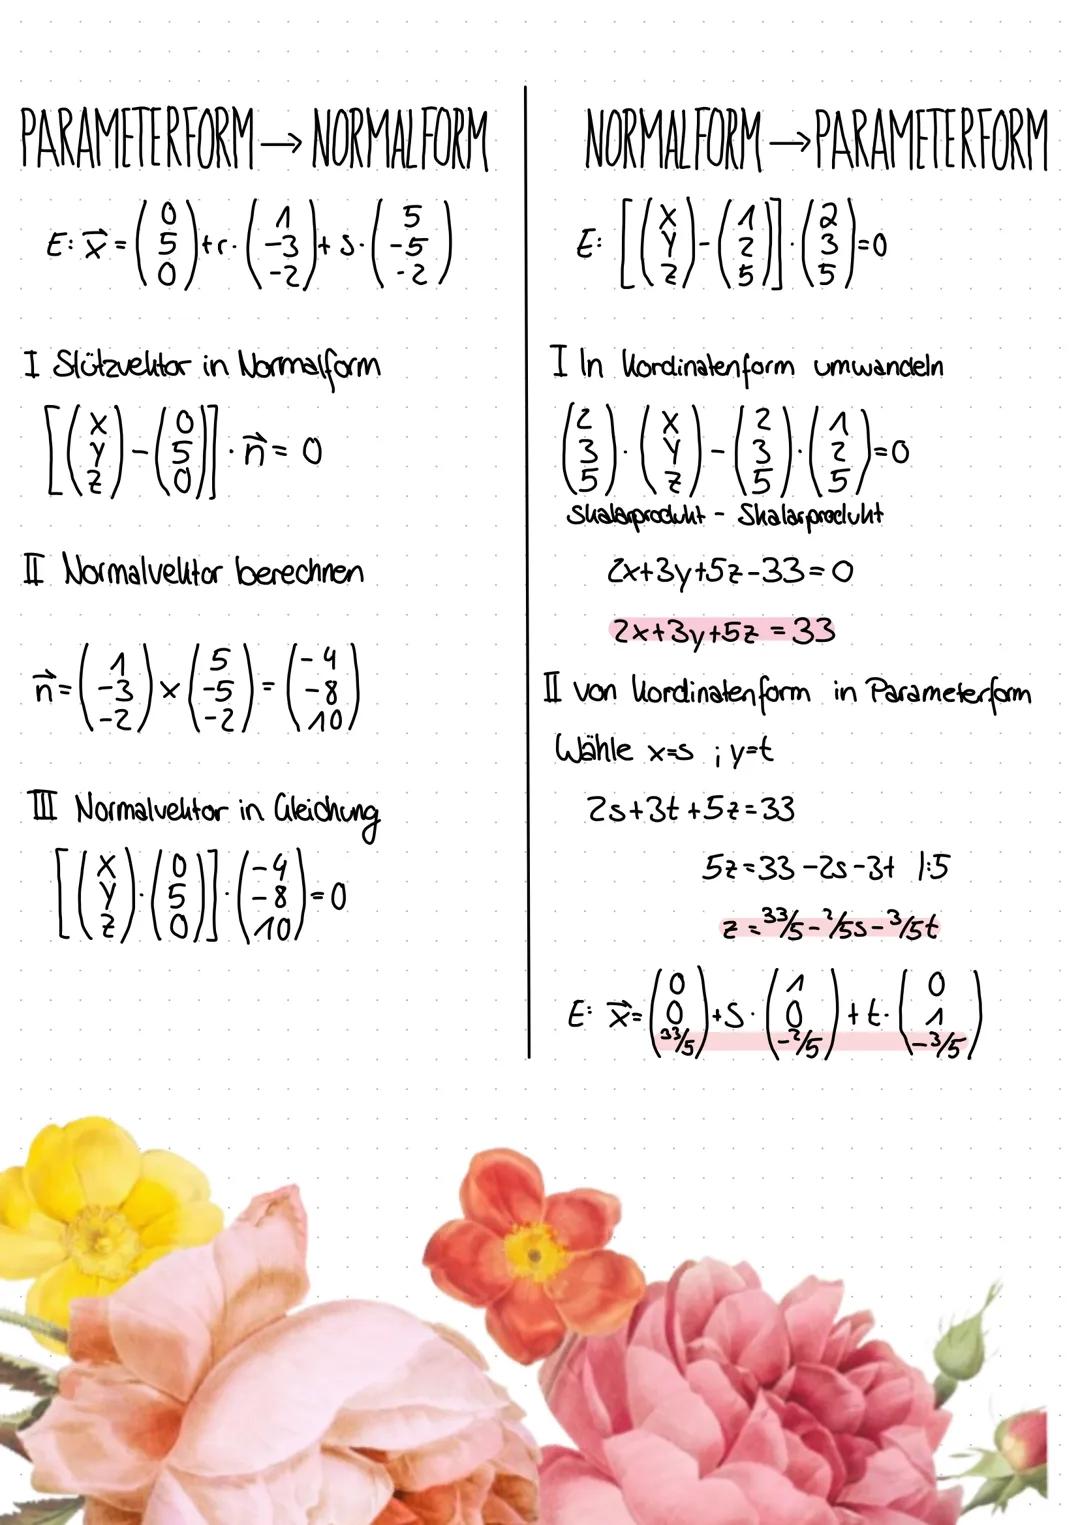 PARAMETERFORM → NORMALFORM
E: x⃗ = (0 5 0) + r · (1 -3 -2) + s · (5 -5 -2)
I Stützvektor in Normalform
[(x y z) - (0 5 0)] · n⃗ = 0
II Normalvektor berechnen
n⃗ = (1 -3 -2) × (5 -5 -2) = (-4 -8 10)
III Normalvektor in Gleichung
[(x y z) · (0 5 0)] · (-4 -8 10) = 0
NORMALFORM → PARAMETERFORM
E: [(x y z) - (1 2 5)] · (2 3 5) = 0
I In Kordinatenform umwandeln
(2 3 5) · (x y z) - (2 3 5) · (1 2 5) = 0
Skalarprodukt - Skalarprodukt
2x+3y+5z-33=0
2x+3y+5z=33
II von Kordinatenform in Parameterform
Wähle x=s ; y=t
2s+3t+5z=33
5z=33-2s-3t |:5
z=33/5-2/5s-3/5t
E: x⃗ = (0 0 33/5) + s · (1 0 -2/5) + t · (0 1 -3/5)